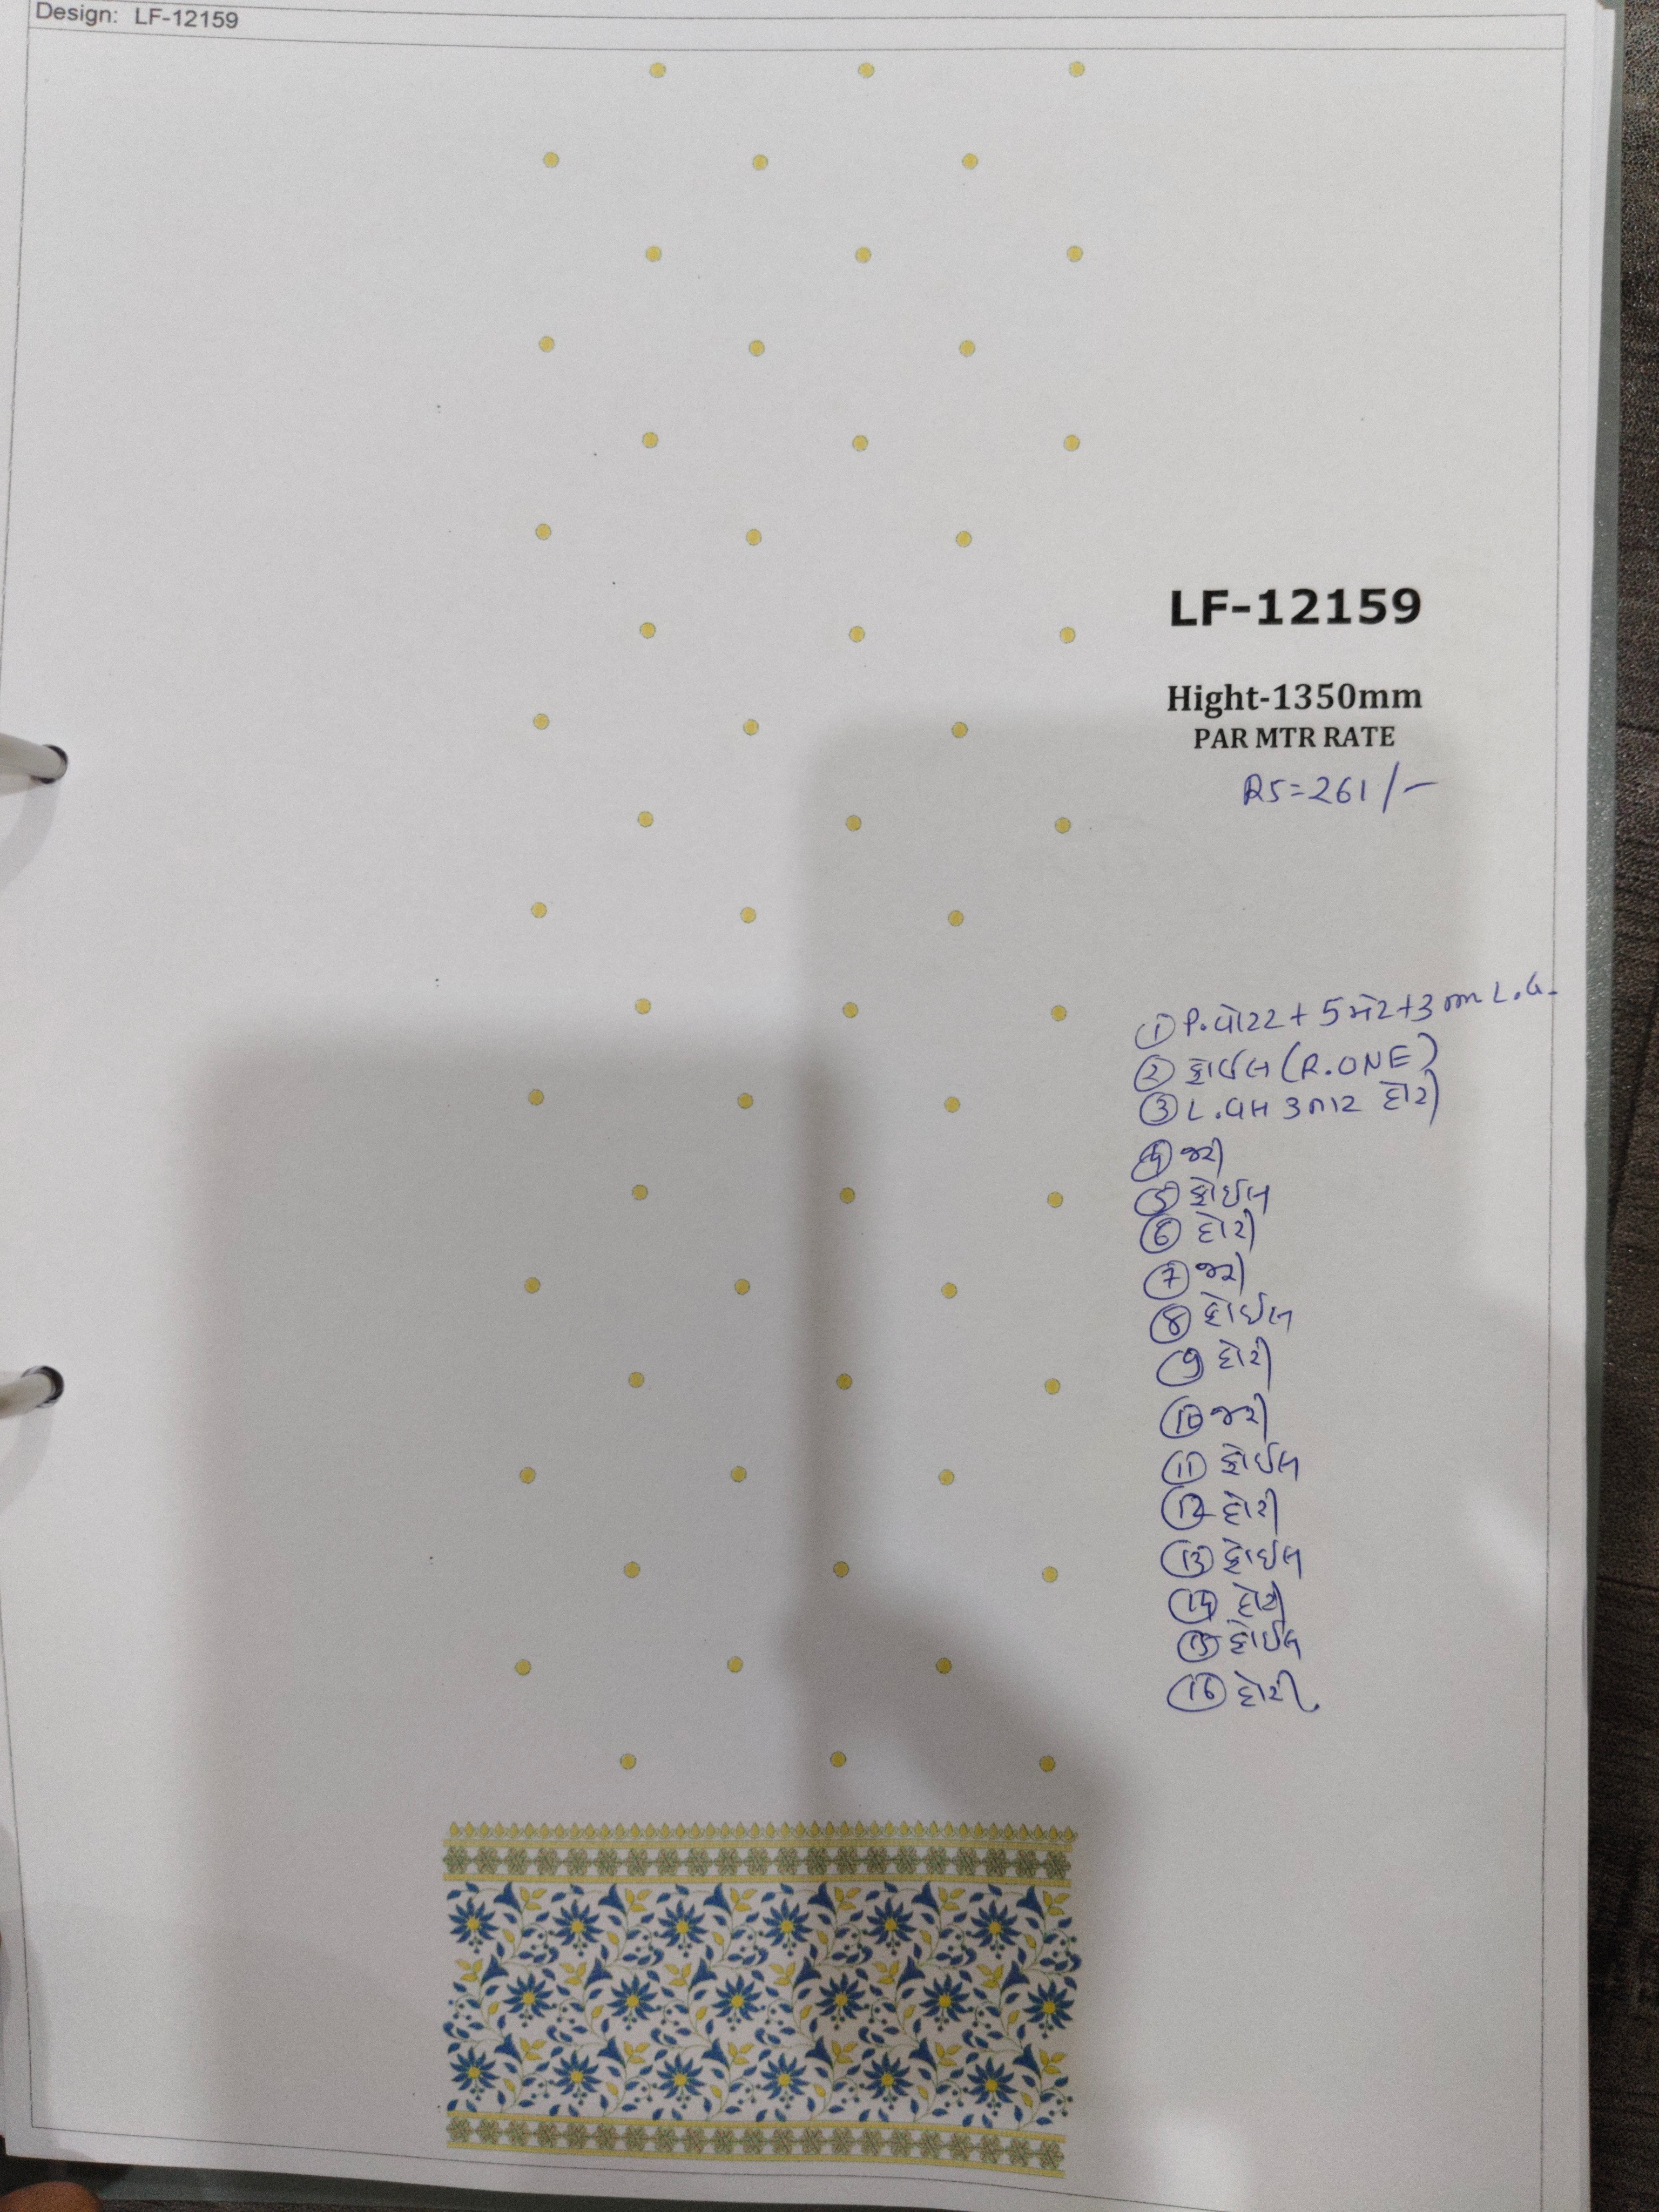 Design: LF-12159
LF-12159
Hight-1350mm
PAR MTR RATE
RS=261/-
① P.વોટર + 5 મેટ+3 mm L.G.
② ફોઈલ (R.ONE)
③ L. ઉતાર દોરી
④ જરી
⑤ ફોઈલ
⑥ દોરી
⑦ જરી
⑧ ફોઈલ
⑨ દોરી
⑩ જરી
⑪ ફોઈલ
⑫ દોરી
⑬ ફોઈલ
⑭ દોરી
⑮ ફોઈલ
⑯ દોરી.